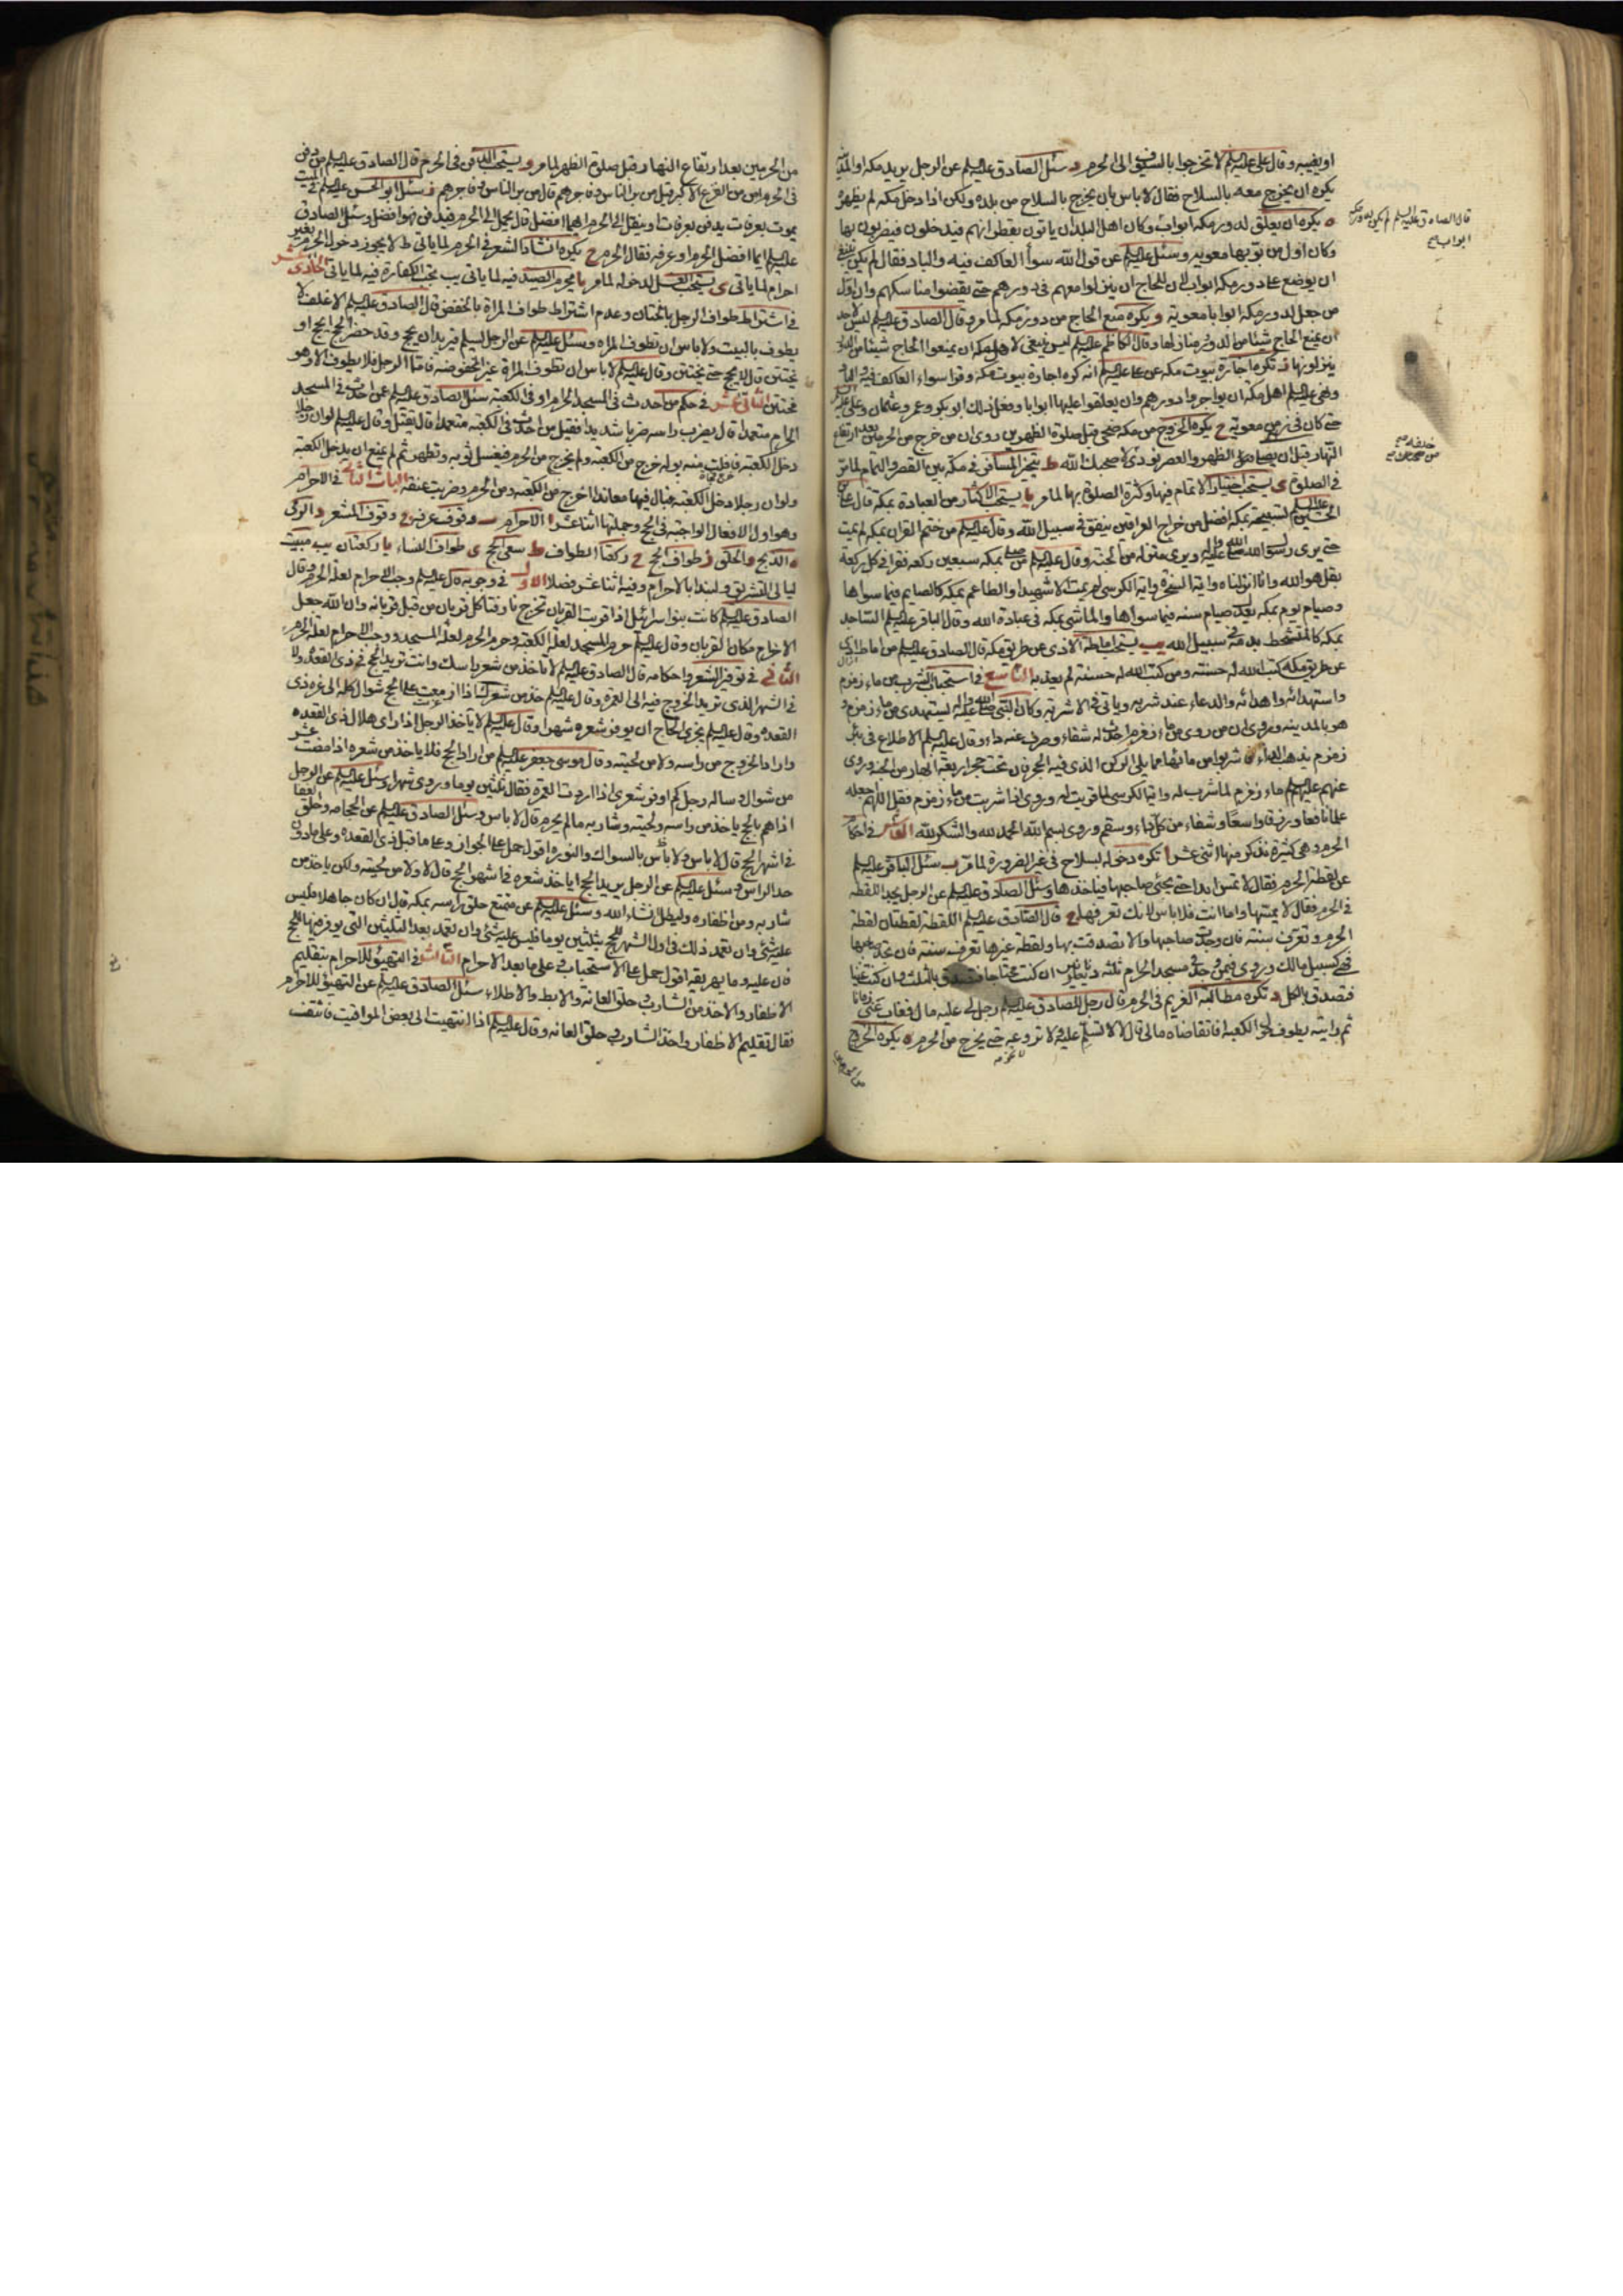 او يغيبه وقال على عليه السلم لا تخرجوا بالسيوف الى الحرم د سئل الصادق عليه السلم عن الرجل يريد مكه او المدينة
يكره ان يخرج معه بالسلاح فقال لا باس بان يخرج بالسلاح من بلده ولكن اذا دخل مكه لم يظهره
ه يكره ان يعلق لدور مكه ابواب وكان اهل البلدان ياتون بقطرانهم فيدخلون فيضربون بها
وكان اول من بوبها معويه وسئل عليه السلم عن قول الله سوآ العاكف فيه والباد فقال لم يكن ينبغى
ان يوضع على دور مكه ابواب لان للحاج ان ينزلوا معهم فى دورهم حتى يقضوا مناسكهم وان اول
من جعل لدور مكه ابوابا معوية و يكره منع الحاج من دور مكه لما مر وقال الصادق عليه السلم ليس لاحد
ان يمنع الحاج شيئا من الدور ومنازلها وقال الكاظم عليه السلم ليس ينبغى لاهل مكه ان يمنعوا الحاج شيئا من الدور
ينزلونها ز تكره اجارة بيوت مكه عن على عليه السلم انه كره اجارة بيوت مكه وقرا سواء العاكف فيه والباد
ونهى عليه السلم اهل مكه ان يواجروا دورهم وان يعلقوا عليها ابوابا وفعل ذلك ابو بكر وعمر وعثمان وعلى عليه السلم
حتى كان فى زمن معوية ح يكره الخروج من مكه ضحى قبل صلوة الظهرين روى ان من خرج من الحرمين بعد ارتفاع
النهار قبل ان يصلى الظهر والعصر نودى لا صحبك الله ط يتخير المسافر فى مكه بين القصر والتمام لما مر
فى الصلوة ى يستحب اختيار الاتمام فيها وكثرة الصلوة بها لما مر يا يستحب الاكثار من العبادة بمكه قال على بن
الحسين عليه السلم تسبيحة بمكه افضل من خراج العراقين ينفق فى سبيل الله وقال عليه السلم من ختم القران بمكه لم يمت
حتى يرى رسول الله صلى الله عليه واله ويرى منزله من الجنة وقال عليه السلم من صلى بمكه سبعين ركعه فقرا فى كل ركعة
بقل هو الله وانا انزلناه واية السخرة واية الكرسى لم يمت الا شهيدا والطاعم بمكه كالصايم فيما سواها
وصيام يوم بمكه يعدل صيام سنه فيما سواها والماشى بمكه فى عبادة الله وقال الباقر عليه السلم الساجد
بمكه كالمتشحط بدمه فى سبيل الله يب يستحب اماطة الاذى عن طريق مكه قال الصادق عليه السلم من اماط اذى
عن طريق مكه كتب الله له حسنه ومن كتب الله له حسنة لم يعذبه التاسع فى استحباب الشرب من ماء زمزم
واستهدائه واهدائه والدعاء عند شربه وياتى فى الاشربه وكان النبى صلى الله عليه واله يستهدى من ماء زمزم و
هو بالمدينه وروى ان من روى من ماء زمزم احدث له شفاء وصرف عنه داء وقال عليه السلم الاطلاع فى بئر
زمزم يذهب الداء فاشربوا من مائها مما يلى الركن الذى فيه الحجر فان تحت الحجر اربعة انهار من الجنه وروى
عنهم عليهم السلم ماء زمزم لما شرب له واية الكرسى لما قريت له وروى اذا شربت من ماء زمزم فقل اللهم اجعله
علما نافعا ورزقا واسعا وشفاء من كل داء وسقم وروى بسم الله الحمد لله والشكر لله العاشر فى احكام
الحرم وهى كثيرة نذكر منها اثنى عشر ا تكره دخوله بسلاح فى غير الضرورة لما مر ب سئل الباقر عليه السلم
عن لقطة الحرم فقال لا تمس ابدا حتى يجئ صاحبها فياخذها وسئل الصادق عليه السلم عن الرجل يجد اللقطه
فى الحرم فقال لا يمسها واما انت فلا باس لانك تعرفها ج قال الصادق عليه السلم اللقطه لقطتان لقطة
الحرم وتعرف سنة فان وجدت صاحبها والا تصدقت بها ولقطة غيرها تعرف سنه فان لم تجد صاحبها
فهى كسبيل مالك وروى فيمن وجد فى مسجد الحرام ثلثة دنانير ان كنت محتاجا فتصدق بالثلث وان كنت غنيا
فتصدق بالكل د تكره مطالبة الغريم فى الحرم قال رجل للصادق عليه السلم رجل لى عليه مال فغاب عنى زمانا
ثم رايته يطوف حول الكعبه افاتقاضاه مالى قال لا لا تسلم عليه ولا تروعه حتى يخرج من الحرم ه يكره الخروج
من الحرمين
قال الصادق عليه السلم لم يكن لدور مكه
ابواب صح
من الحرمين بعد ارتفاع النهار وقبل صلوة الظهر لما مر و يستحب الدفن فى الحرم قال الصادق عليه السلم من دفن
فى الحرم امن من الفزع الاكبر قيل من بر الناس وفاجرهم قال من بر الناس وفاجرهم ز سئل ابو الحسن عليه السلم فى الميت
يموت بعرفات يدفن بعرفات او ينقل الى الحرم ايهما افضل قال يحمل الى الحرم فيدفن فهو افضل وسئل الصادق
عليه السلم ايما افضل الحرم او عرفه فقال الحرم ح يكره انشاد الشعر فى الحرم لما ياتى ط لا يجوز دخول الحرم بغير
احرام لما ياتى ى يستحب الغسل لدخوله لما مر يا يحرم الصيد فيه لما ياتى يب تجب الكفارة فيه لما ياتى الحادى عشر
فى اشتراط طواف الرجل بالختان وعدم اشتراط طواف المراة بالخفض قال الصادق عليه السلم الاغلف لا
يطوف بالبيت ولا باس ان تطوف المراه وسئل عليه السلم عن الرجل يسلم فيريد ان يحج وقد حضر الحج ايحج او
يختتن قال لا يحج حتى يختتن وقال عليه السلم لا باس ان تطوف المراة غير المخفوضه فاما الرجل فلا يطوف الا وهو
مختتن الثانى عشر فى حكم من احدث فى المسجد الحرام او فى الكعبه سئل الصادق عليه السلم عن احدث فى المسجد
الحرام متعمدا قال يضرب راسه ضربا شديدا فقيل من احدث فى الكعبه متعمدا قال يقتل وقال عليه السلم لو ان رجلا
دخل الكعبه فافلت منه بوله خرج من الكعبه ولم يخرج من الحرم فيغسل ثوبه وتطهر ثم لم يمنع ان يدخل الكعبه
ولو ان رجلا دخل الكعبه فبال فيها معاندا اخرج من الكعبه ومن الحرم وضربت عنقه الباب الثالث فى الاحرام
وهو اول الافعال الواجبة فى الحج وجملتها اثنا عشر ا الاحرام ب وقوف عرفه ج وقوف المشعر د الرمى
ه الذبح و الحلق ز طواف الحج ح ركعتا الطواف ط سعى الحج ى طواف النساء يا ركعتان يب مبيت
ليالى التشريق ولنبدا بالاحرام وفيه اثنا عشر فصلا الاول فى وجوبه قال عليه السلم وجب الاحرام لعلة الحرم وقال
الصادق عليه السلم كانت بنو اسرائيل اذا قربت القربان تخرج نار فتاكل قربان من قبل قربانه وان الله جعل
الاحرام مكان القربان وقال عليه السلم حرم المسجد لعلة الكعبه وحرم الحرم لعلة المسجد ووجب الاحرام لعلة الحرم
الثانى فى توفير الشعر واحكامه قال الصادق عليه السلم لا تاخذ من شعر راسك وانت تريد الحج فى ذى القعده ولا
فى الشهر الذى تريد الخروج فيه الى العمره وقال عليه السلم خذ من شعرك اذا ازمعت على الحج شوال كله الى غره ذى
القعده وقال عليه السلم يجزى الحاج ان يوفر شعره شهرا وقال عليه السلم لا ياخذ الرجل اذا راى هلال ذى القعده
واراد الخروج من راسه ولا من لحيته وقال موسى بن جعفر عليه السلم من اراد الحج فلا ياخذ من شعره اذا مضت عشر
من شوال وساله رجل كم اوفر شعرى اذا اردت العمرة فقال ثلثين يوما وروى شهرا وسئل عليه السلم عن الرجل
اذا هم بالحج ياخذ من راسه ولحيته وشاربه ما لم يحرم قال لا باس وسئل الصادق عليه السلم عن الحجامه وحلق القفا
فى اشهر الحج قال لا باس ولا باس بالسواك والنوره اقول حمل على الجواز وعلى ما قبل ذى القعده وعلى ما دون
حد الراس وسئل عليه السلم عن الرجل يريد الحج اياخذ شعره فى اشهر الحج قال لا ولا من لحيته ولكن ياخذ من
شاربه ومن اظفاره وليطل ان شاء الله وسئل عليه السلم عن متمتع حلق راسه بمكه قال ان كان جاهلا فليس
عليه شئ وان تعمد ذلك فى اول الشهور للحج بثلثين يوما فليس عليه شئ وان تعمد بعد الثلثين التى يوفر فيها للحج
فان عليه دما يهريقه اقول حمل على الاستحباب وعلى ما بعد الاحرام الثالث فى التهيؤ للاحرام بتقليم
الاظفار والاخذ من الشارب وحلق العانه والابط والاطلاء سئل الصادق عليه السلم عن التهيؤ للاحرام
فقال تقليم الاظفار واخذ الشارب وحلق العانه وقال عليه السلم اذا انتهيت الى بعض المواقيت فانتف